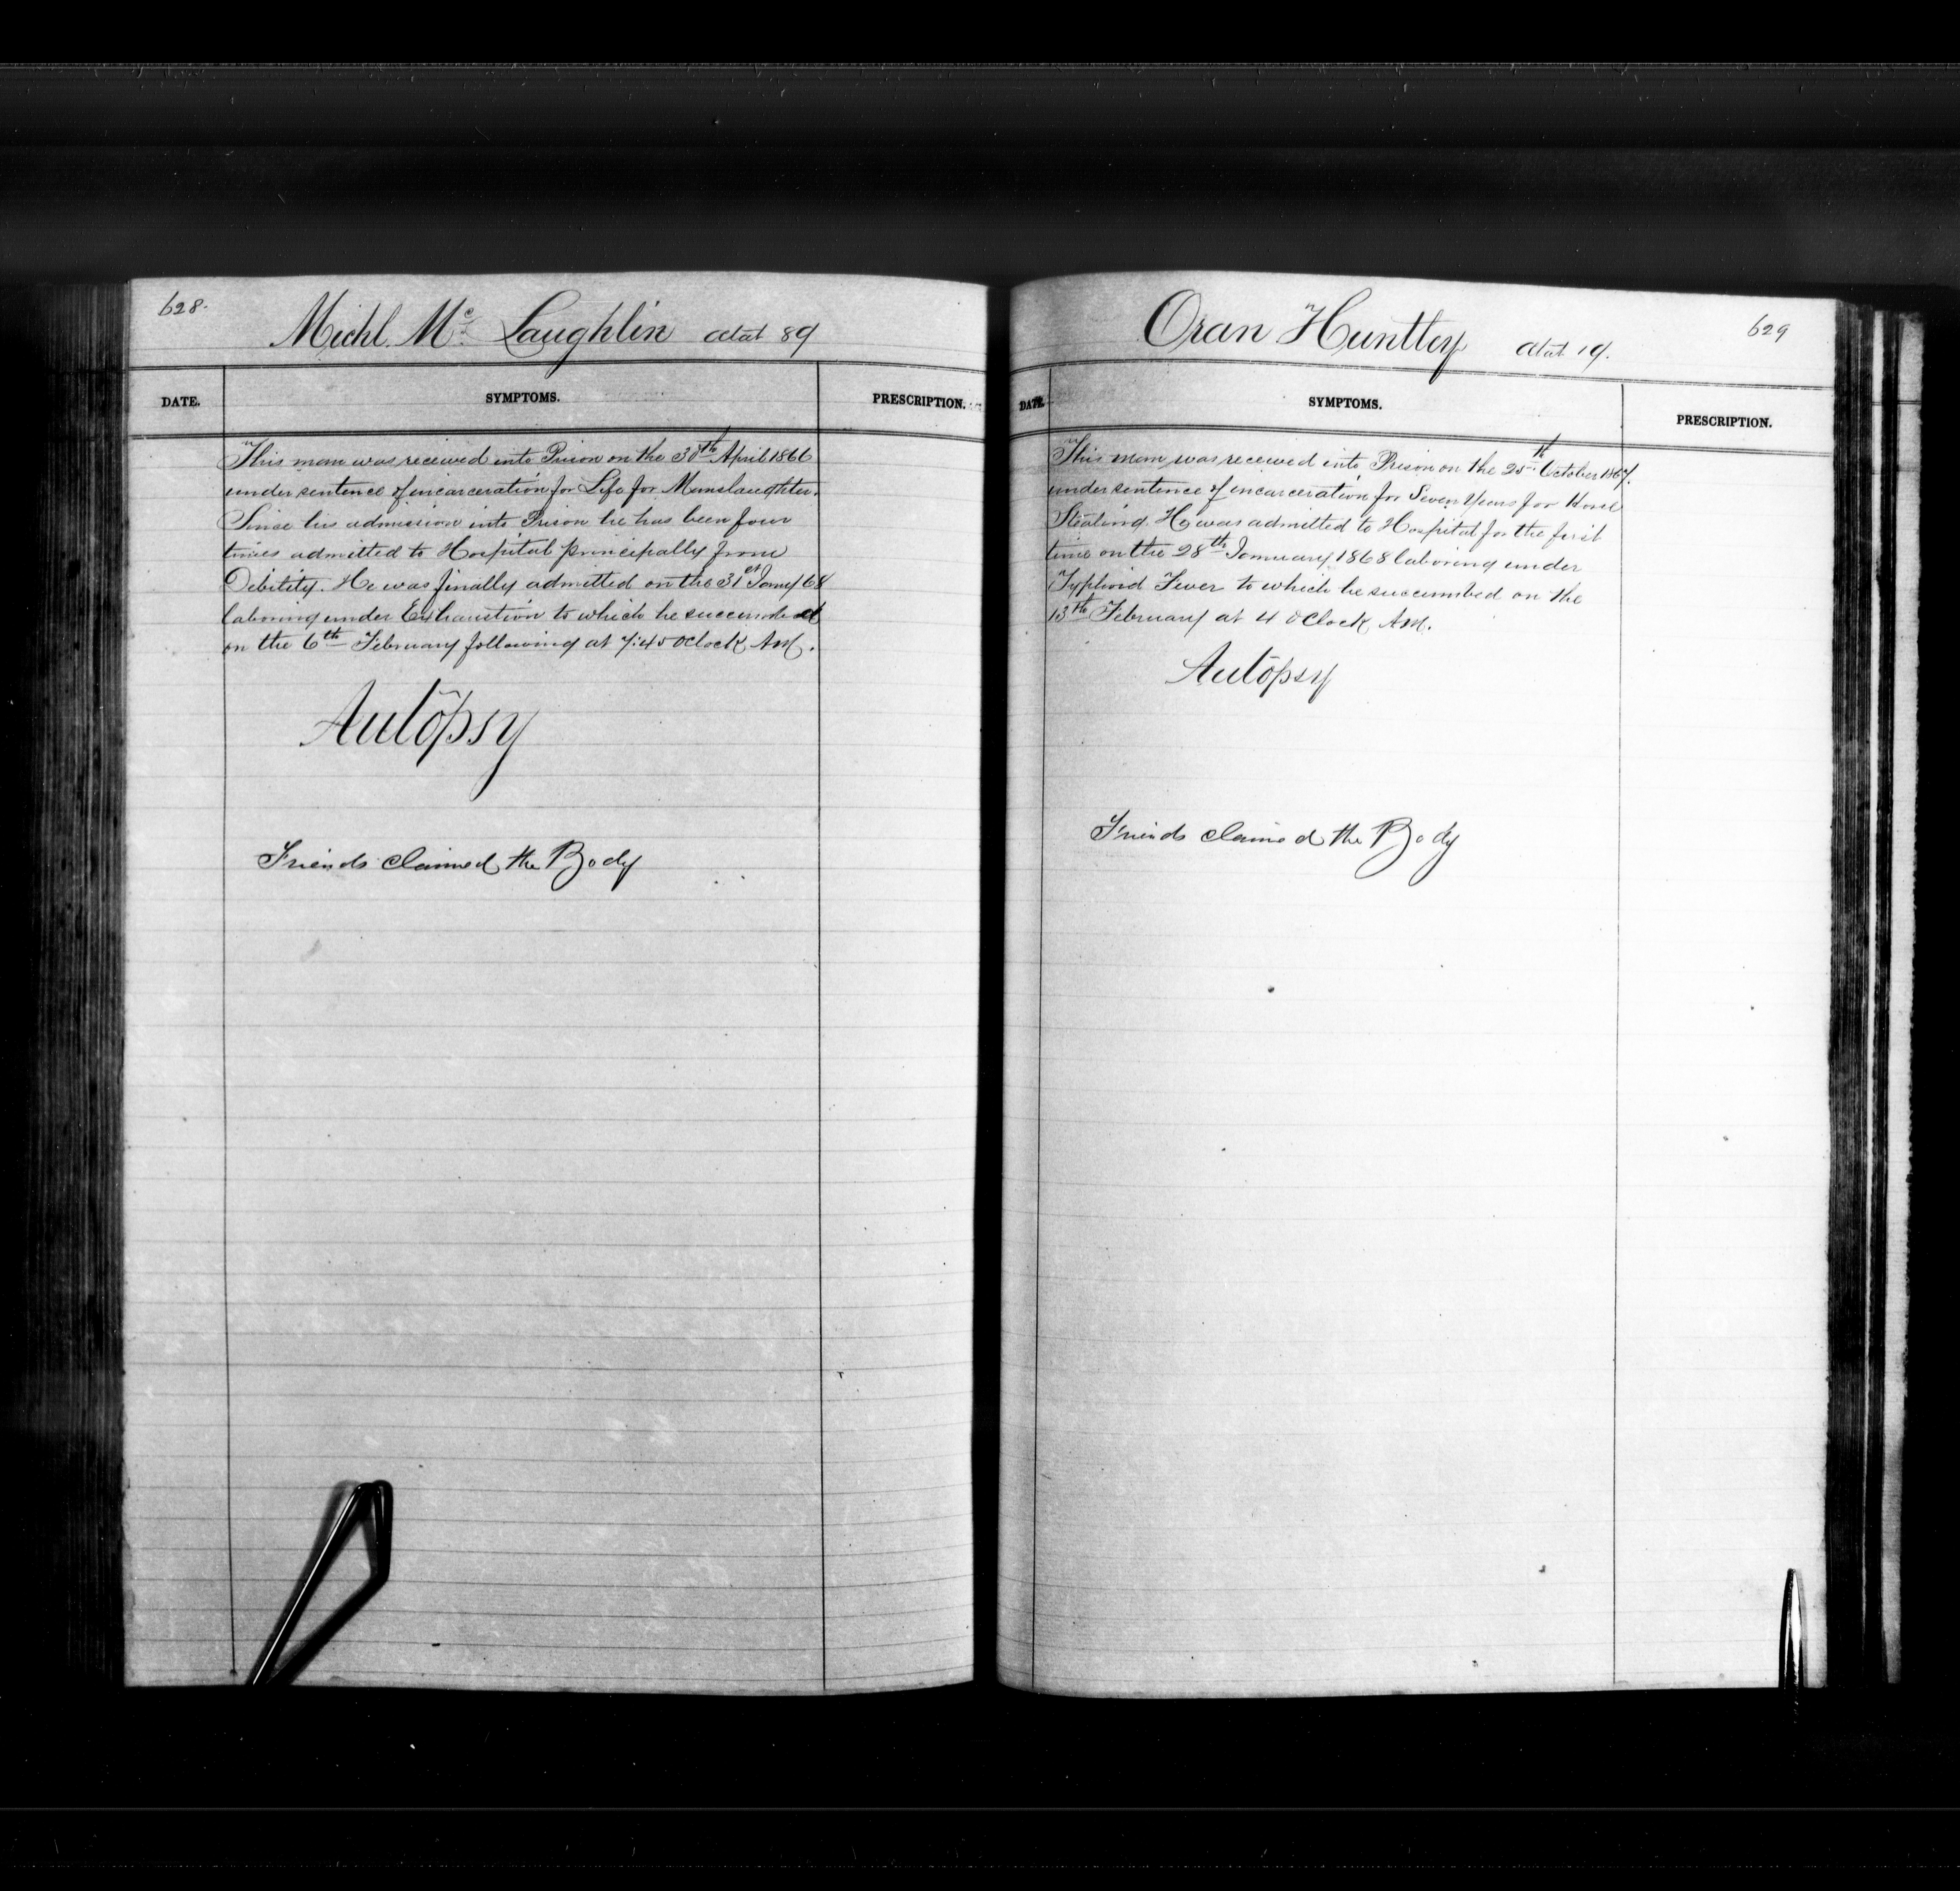 628.
Michl. Mc Laughlin Ætat 89
DATE. SYMPTOMS. PRESCRIPTION.
This man was received into Prison on the 30th April 1866
under sentence of incarceration for Life for Manslaughter.
Since his admission into Prison he has been four
times admitted to Hospital principally from
Debility. He was finally admitted on the 31st Jany 68
laboring under Exhaustion to which he succumbed
on the 6th February following at 7:45 OClock AM.
Autopsy
Friends claimed the Body
629
Oran Huntley Ætat 19.
DATE. SYMPTOMS. PRESCRIPTION.
This man was received into Prison on the 25th October 1867.
under sentence of incarceration for Seven Years for Horse
Stealing. He was admitted to Hospital for the first
time on the 28th January 1868 laboring under
Typhoid Fever to which he succumbed on the
13th February at 4 OClock AM.
Autopsy
Friends claimed the Body